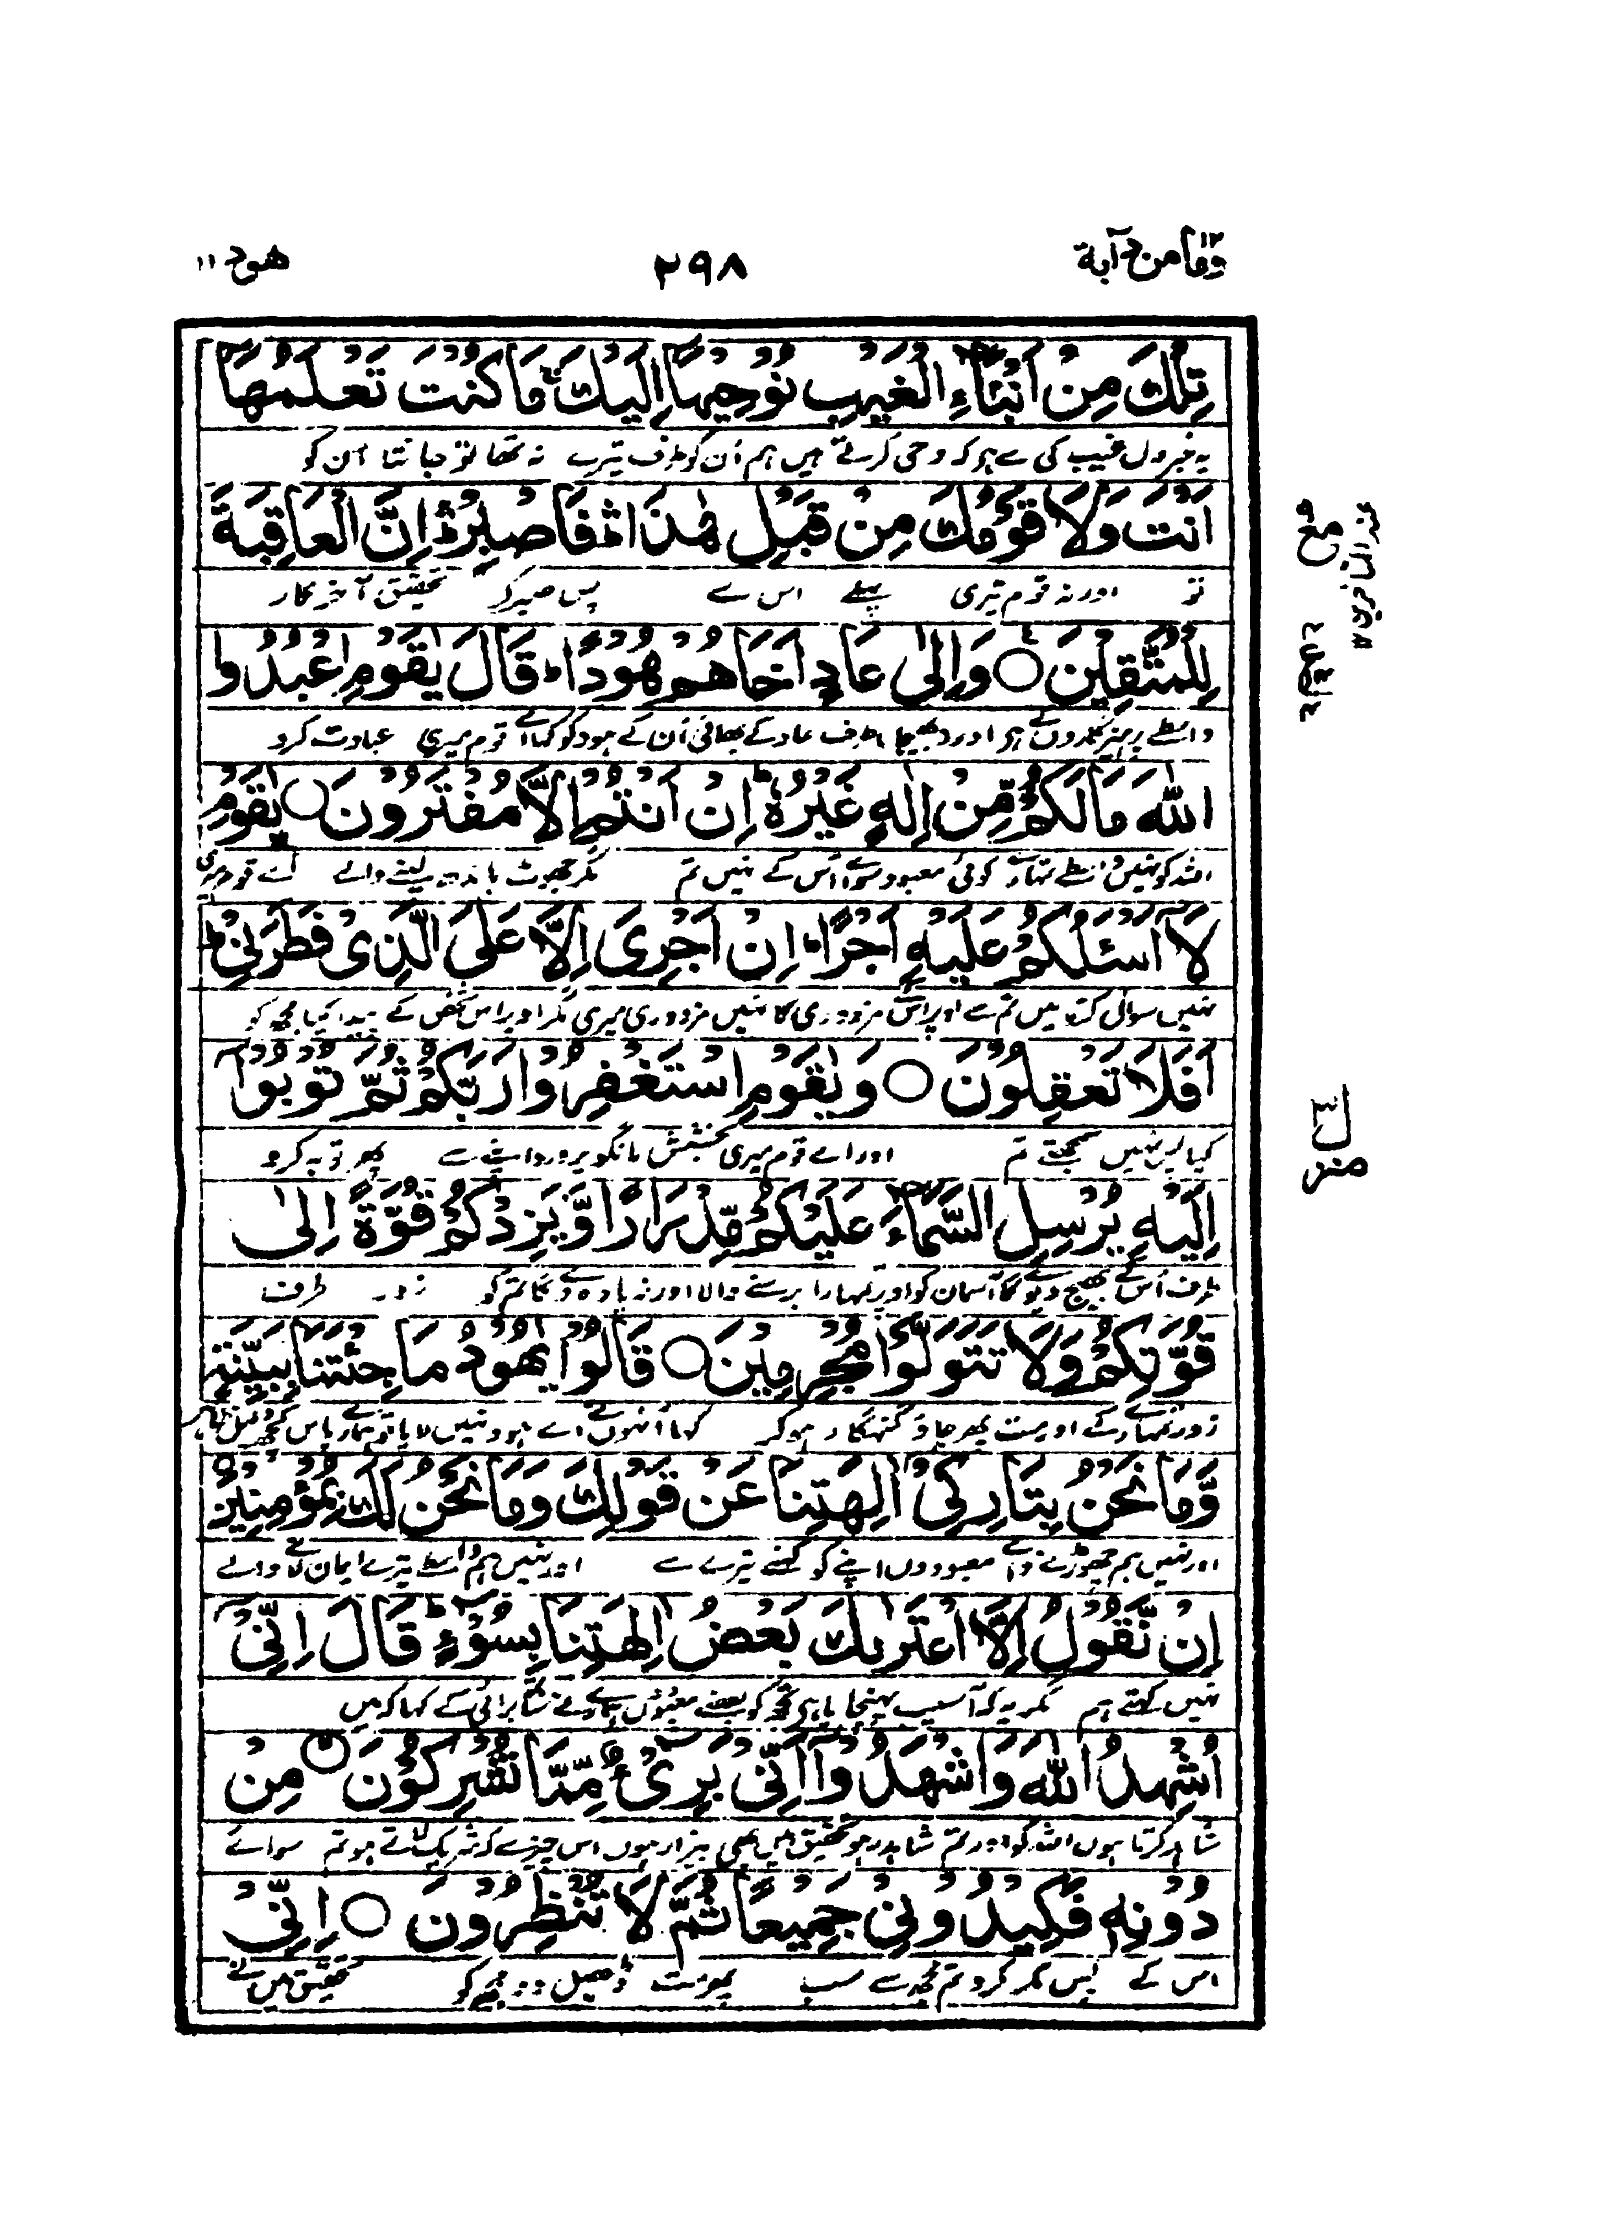 وما من دآبة ١٢ ٢٩٨ هود ١١
تِلْكَ مِنْ اَنْۢبَآءِ الْغَيْبِ نُوْحِيْهَآ اِلَيْكَ ۚ مَا كُنْتَ تَعْلَمُهَآ
یہ خبروں غیب کی سے ہے کہ وحی کرتے ہیں ہم اُن کو طرف تیرے نہ تھا تو جانتا ان کو
اَنْتَ وَلَا قَوْمُكَ مِنْ قَبْلِ هٰذَا ۛ فَاصْبِرْ ۛ اِنَّ الْعَاقِبَةَ
تو اور نہ قوم تیری پہلے اس سے پس صبر کر تحقیق آخر کار
لِلْمُتَّقِيْنَ ○ وَاِلٰى عَادٍ اَخَاهُمْ هُوْدًا ۭ قَالَ يٰقَوْمِ اعْبُدُوا
واسطے پرہیزگاروں کے ہے اور بھیجا طرف عاد کے بھائی اُن کے ہود کو کہا اے قوم میری عبادت کرو
اللّٰهَ مَا لَكُمْ مِّنْ اِلٰهٍ غَيْرُهٗ ۭ اِنْ اَنْتُمْ اِلَّا مُفْتَرُوْنَ ○ يٰقَوْمِ
اللہ کو نہیں واسطے تمہارے کوئی معبود سوائے اُس کے نہیں تم مگر جھوٹ باندھ لینے والے اے قوم میری
لَآ اَسْـَٔلُكُمْ عَلَيْهِ اَجْرًا ۭ اِنْ اَجْرِيَ اِلَّا عَلَى الَّذِيْ فَطَرَنِيْ ۭ
نہیں سوال کرتا میں تم سے اوپر اس کے مزدوری کا نہیں مزدوری میری مگر اوپر اس شخص کے پیدا کیا مجھ کو
اَفَلَا تَعْقِلُوْنَ ○ وَيٰقَوْمِ اسْتَغْفِرُوْا رَبَّكُمْ ثُمَّ تُوْبُوْٓا
کیا پس نہیں سمجھتے تم اور اے قوم میری بخشش مانگو پروردگار اپنے سے پھر توبہ کرو
اِلَيْهِ يُرْسِلِ السَّمَآءَ عَلَيْكُمْ مِّدْرَارًا وَّيَزِدْكُمْ قُوَّةً اِلٰى
طرف اُس کے بھیج دیوے گا آسمان کو اوپر تمہارے برسنے والا اور زیادہ دے گا تم کو زور طرف
قُوَّتِكُمْ وَلَا تَتَوَلَّوْا مُجْرِمِيْنَ ○ قَالُوْا يٰهُوْدُ مَا جِئْتَنَا بِبَيِّنَةٍ
زور تمہارے کے اور مت پھر جاؤ گنہگار ہو کر کہا اُنہوں نے اے ہود نہیں لایا تو ہمارے پاس کچھ دلیل ظاہر
وَّمَا نَحْنُ بِتَارِكِيْٓ اٰلِهَتِنَا عَنْ قَوْلِكَ وَمَا نَحْنُ لَكَ بِمُؤْمِنِيْنَ
اور نہیں ہم چھوڑنے والے معبودوں اپنے کو کہنے تیرے سے اور نہیں ہم واسطے تیرے ایمان لانے والے
اِنْ نَّقُوْلُ اِلَّا اعْتَرٰىكَ بَعْضُ اٰلِهَتِنَا بِسُوْٓءٍ ۭ قَالَ اِنِّيْٓ
نہیں کہتے ہم مگر یہ کہ آسیب پہنچایا ہے تجھ کو بعضے معبودوں ہمارے نے ساتھ برائی کے کہا کہ میں
اُشْهِدُ اللّٰهَ وَاشْهَدُوْٓا اَنِّيْ بَرِيْٓءٌ مِّمَّا تُشْرِكُوْنَ ○ مِنْ
شاہد کرتا ہوں اللہ کو اور تم شاہد رہو تحقیق میں بھی بیزار ہوں اس چیز سے کہ شریک لاتے ہو تم سوائے
دُوْنِهٖ فَكِيْدُوْنِيْ جَمِيْعًا ثُمَّ لَا تُنْظِرُوْنِ ○ اِنِّيْ
اس کے پس مکر کرو تم مجھ سے سب پھر مت ڈھیل دو مجھ کو تحقیق میں نے
مع
عند المتأخرين ١٢
ع
منزل ٣